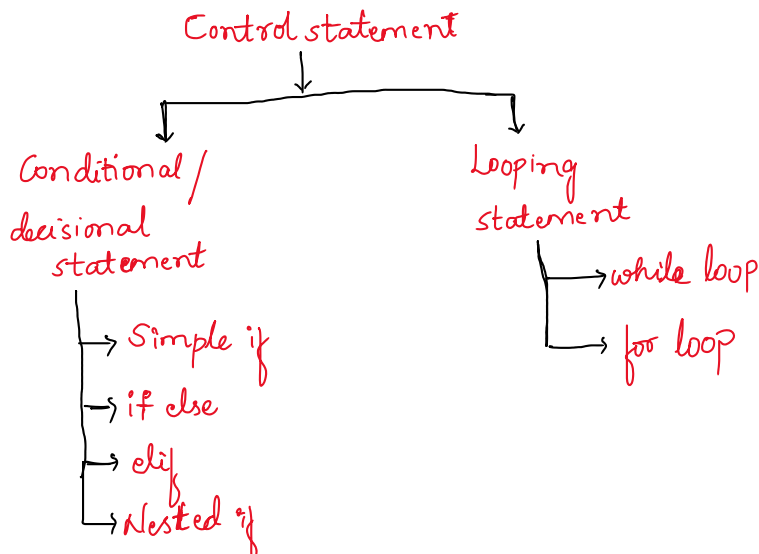 Control statement
Conditional /
decisional
statement
Simple if
if else
elif
Nested if
Looping
statement
while loop
for loop